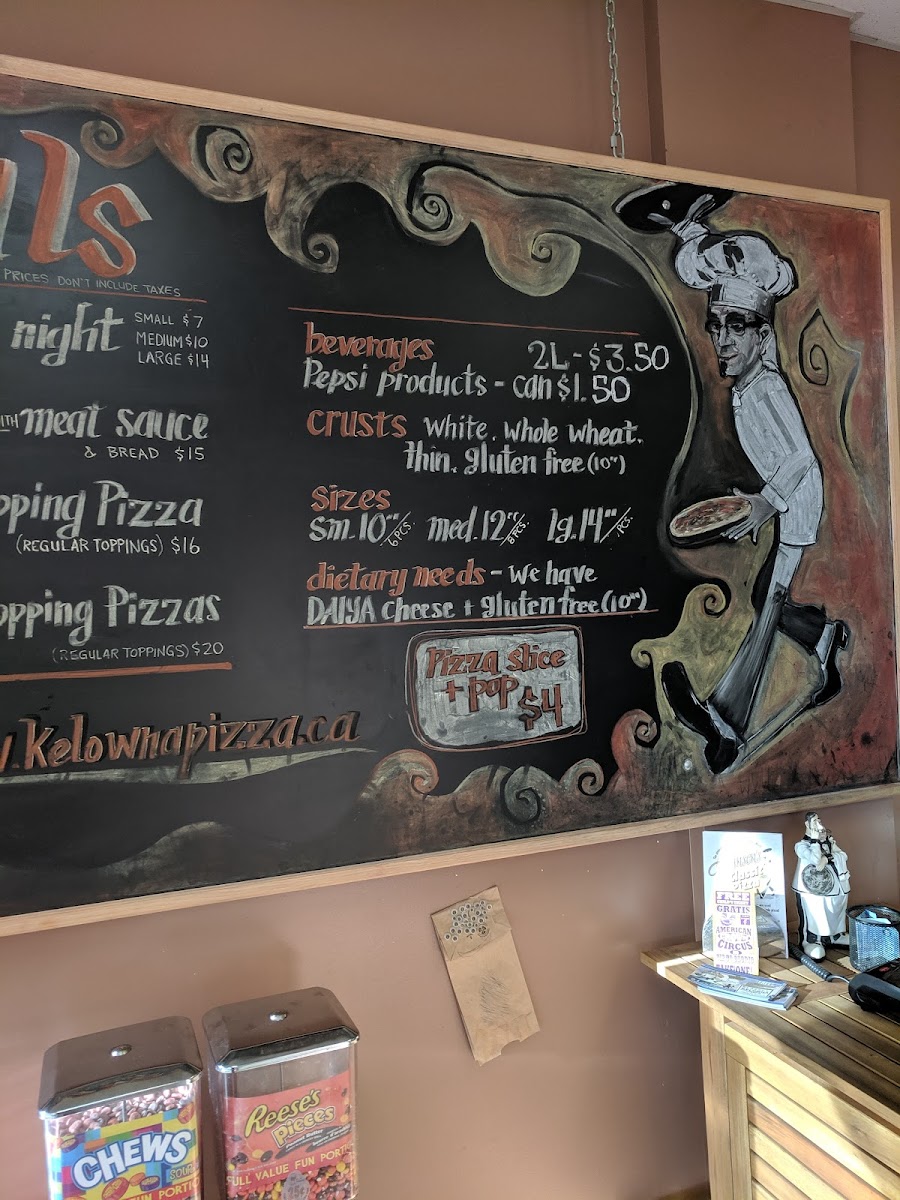 ls
PRICES DON'T INCLUDE TAXES
night
SMALL $7
MEDIUM $10
LARGE $14
meat sauce
& BREAD $15
pping Pizza
(REGULAR TOPPINGS) $16
opping Pizzas
(REGULAR TOPPINGS) $20
.Kelownapizza.ca
beverages 2L - $3.50
Pepsi products - can $1.50
crusts white, whole wheat,
thin, gluten free (10")
sizes
sm. 10"/6 PCS. med. 12"/8 PCS. lg. 14"/PCS.
dietary needs - we have
DAIYA cheese + gluten free (10")
Pizza slice
+ pop
$4
Classic
Pizza
FREE
GRATIS
AMERICAN
CIRCUS
CHEWS
SOUR
FUN PORTIO
Reese's
Pieces
FULL VALUE FUN PORTI
25¢